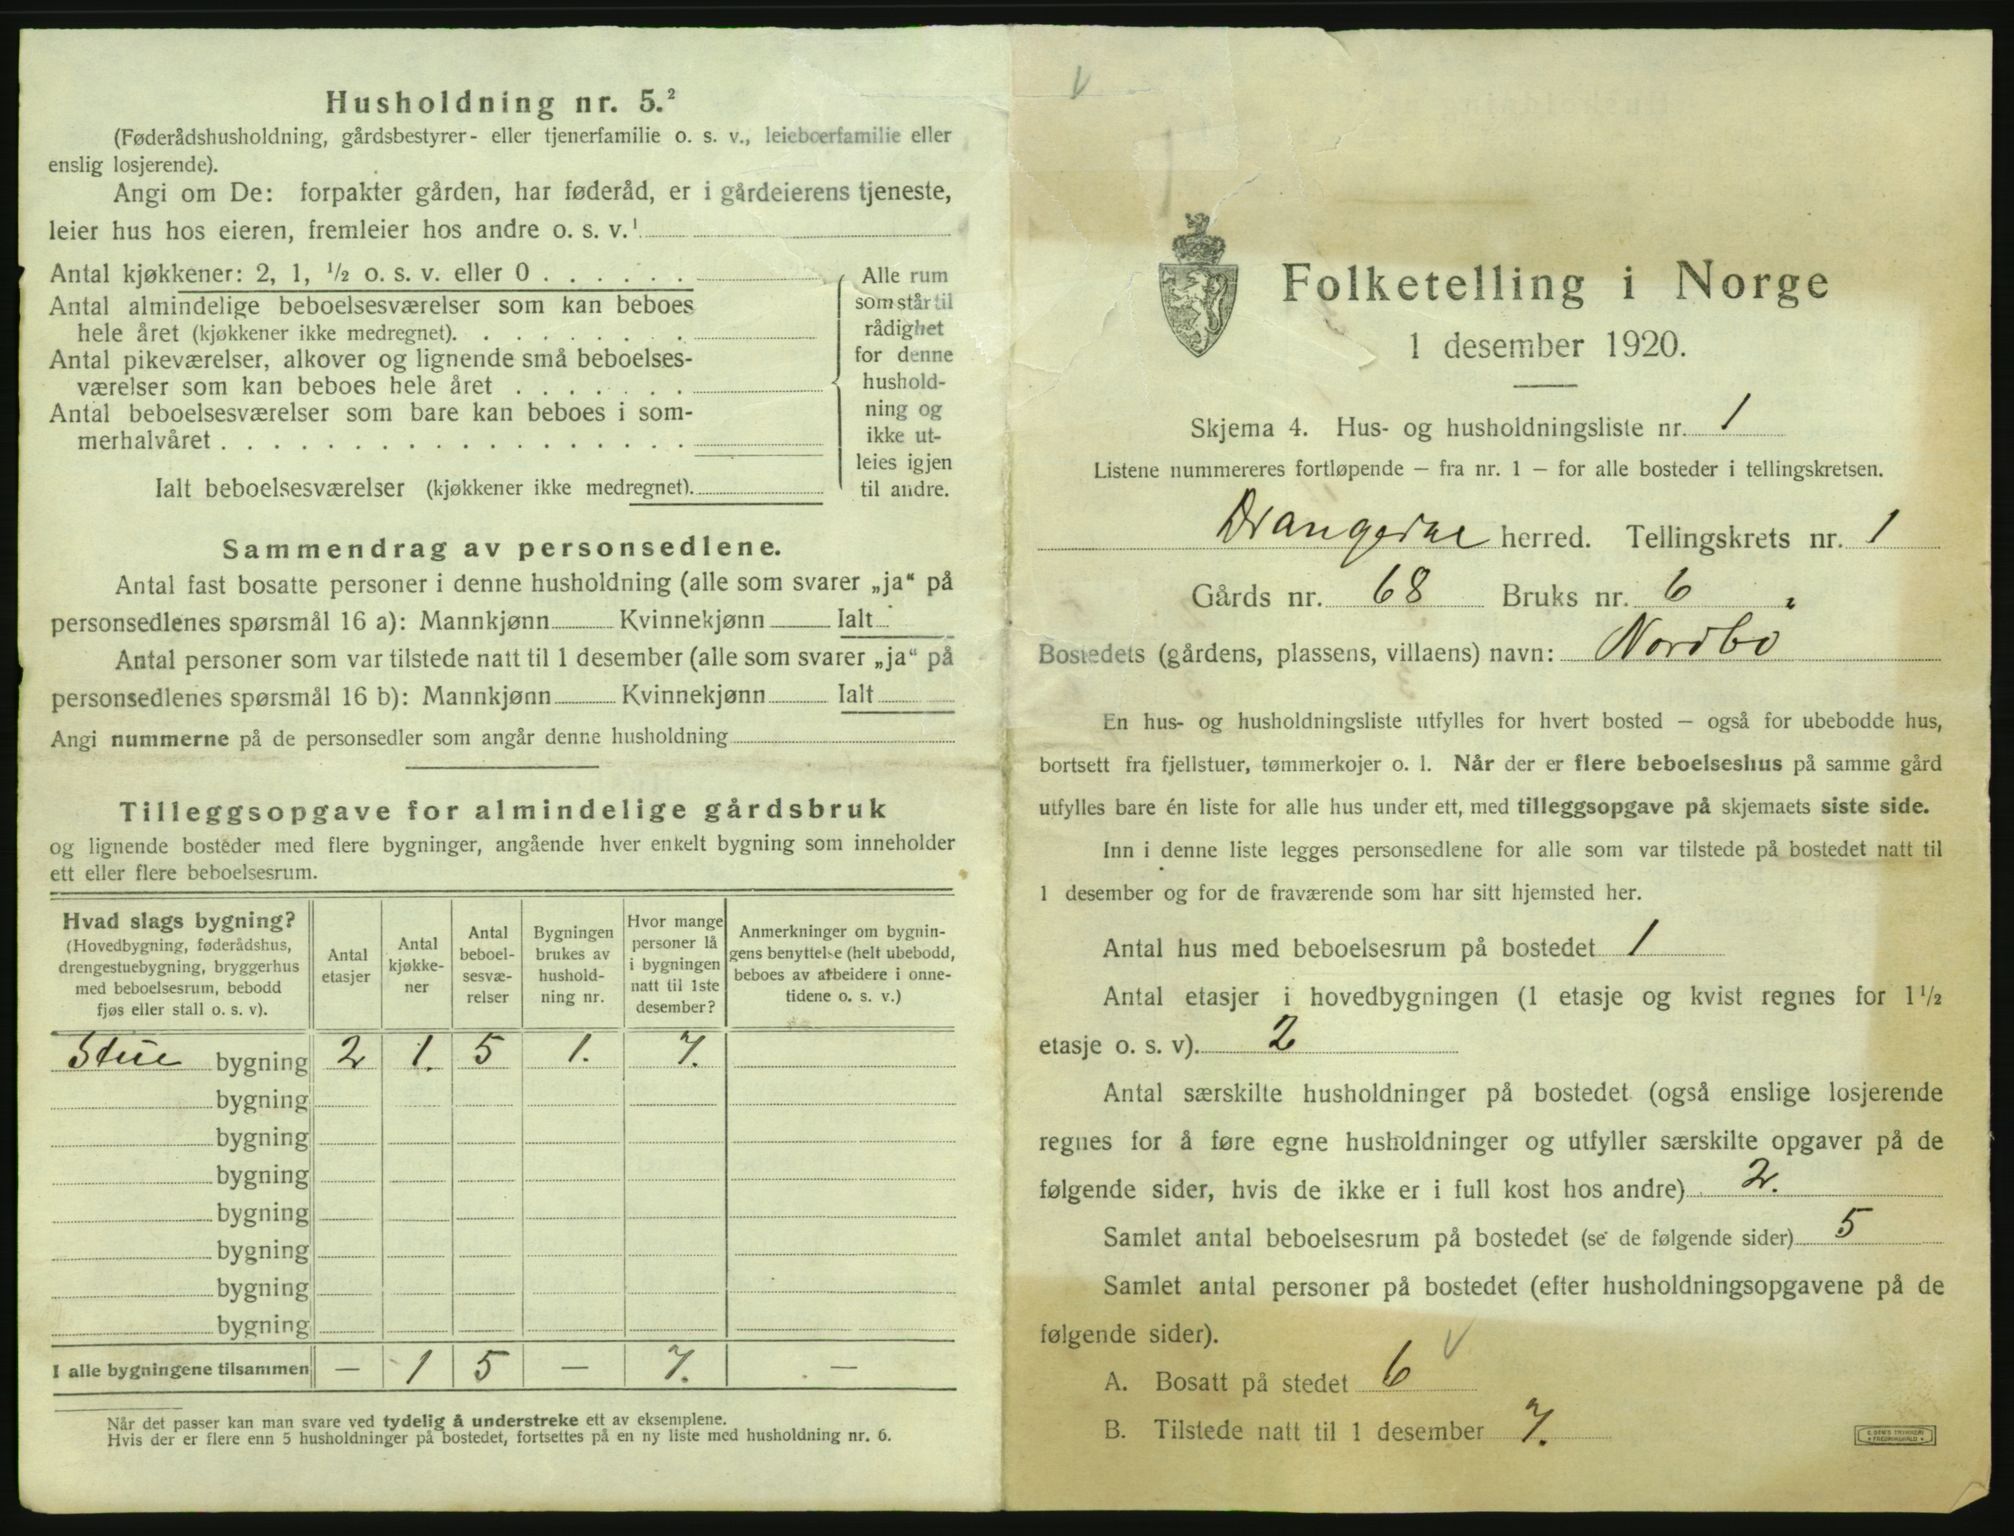 Husholdning nr. 5.²
(Føderådshusholdning, gårdsbestyrer- eller tjenerfamilie o. s. v., leieboerfamilie eller
enslig losjerende).
Angi om De: forpakter gården, har føderåd, er i gårdeierens tjeneste,
leier hus hos eieren, fremleier hos andre o. s. v.¹
Antal kjøkkener: 2, 1, ½ o. s. v. eller 0 . . . . . .
Antal almindelige beboelsesværelser som kan beboes
hele året (kjøkkener ikke medregnet). . . . . . . . .
Antal pikeværelser, alkover og lignende små beboelses-
værelser som kan beboes hele året . . . . . . .
Antal beboelsesværelser som bare kan beboes i som-
merhalvåret . . . . . . . . . . . . . . . . . .
Ialt beboelsesværelser (kjøkkener ikke medregnet).
Alle rum
som står til
rådighet
for denne
hushold-
ning og
ikke ut-
leies igjen
til andre.
Sammendrag av personsedlene.
Antal fast bosatte personer i denne husholdning (alle som svarer „ja“ på
personsedlenes spørsmål 16 a): Mannkjønn Kvinnekjønn Ialt
Antal personer som var tilstede natt til 1 desember (alle som svarer „ja“ på
personsedlenes spørsmål 16 b): Mannkjønn Kvinnekjønn Ialt
Angi nummerne på de personsedler som angår denne husholdning
Tilleggsopgave for almindelige gårdsbruk
og lignende bosteder med flere bygninger, angående hver enkelt bygning som inneholder
ett eller flere beboelsesrum.
Hvad slags bygning?
(Hovedbygning, føderådshus,
drengestuebygning, bryggerhus
med beboelsesrum, bebodd
fjøs eller stall o. s. v).
Antal
etasjer
Antal
kjøkke-
ner
Antal
beboel-
sesvæ-
relser
Bygningen
brukes av
hushold-
ning nr.
Hvor mange
personer lå
i bygningen
natt til 1ste
desember?
Anmerkninger om bygnin-
gens benyttelse (helt ubebodd,
beboes av arbeidere i onne-
tidene o. s. v.)
Stue bygning 2 1. 5 1. 7.
bygning
bygning
bygning
bygning
bygning
bygning
bygning
I alle bygningene tilsammen — 1 5 — 7. —
Når det passer kan man svare ved tydelig å understreke ett av eksemplene.
Hvis der er flere enn 5 husholdninger på bostedet, fortsettes på en ny liste med husholdning nr. 6.
Folketelling i Norge
1 desember 1920.
Skjema 4. Hus- og husholdningsliste nr. 1
Listene nummereres fortløpende — fra nr. 1 — for alle bosteder i tellingskretsen.
Drangedal herred. Tellingskrets nr. 1
Gårds nr. 68 Bruks nr. 6
Bostedets (gårdens, plassens, villaens) navn: Nordbø
En hus- og husholdningsliste utfylles for hvert bosted — også for ubebodde hus,
bortsett fra fjellstuer, tømmerkojer o. l. Når der er flere beboelseshus på samme gård
utfylles bare én liste for alle hus under ett, med tilleggsopgave på skjemaets siste side.
Inn i denne liste legges personsedlene for alle som var tilstede på bostedet natt til
1 desember og for de fraværende som har sitt hjemsted her.
Antal hus med beboelsesrum på bostedet 1
Antal etasjer i hovedbygningen (1 etasje og kvist regnes for 1½
etasje o. s. v). 2
Antal særskilte husholdninger på bostedet (også enslige losjerende
regnes for å føre egne husholdninger og utfyller særskilte opgaver på de
følgende sider, hvis de ikke er i full kost hos andre) 2.
Samlet antal beboelsesrum på bostedet (se de følgende sider) 5
Samlet antal personer på bostedet (efter husholdningsopgavene på de
følgende sider).
A. Bosatt på stedet 6
B. Tilstede natt til 1 desember 7.